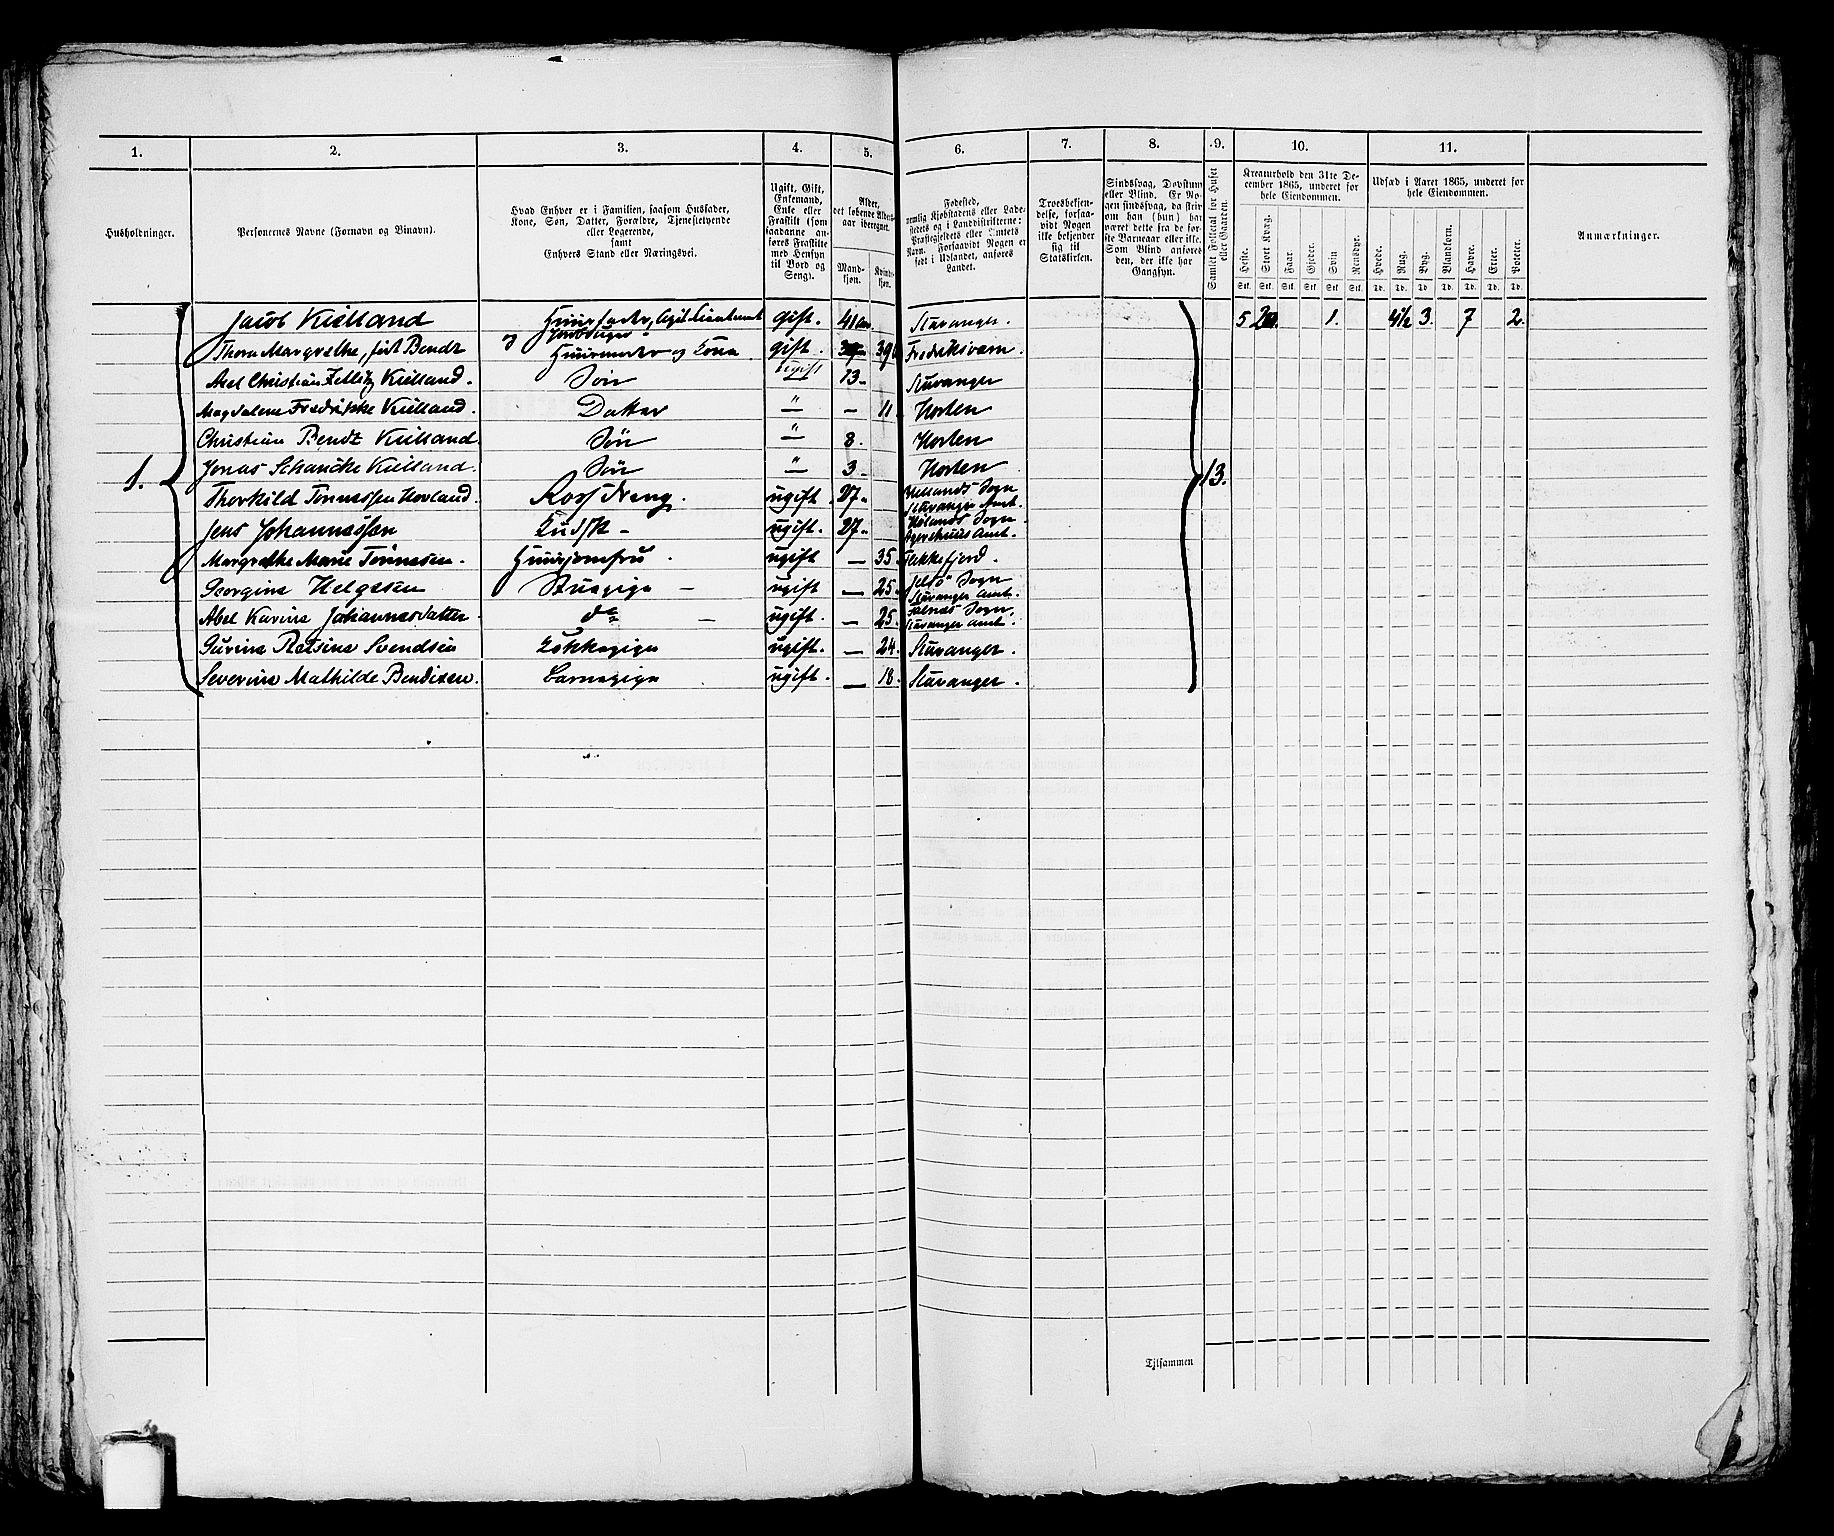 1. 2. 3. 4. 5. 6. 7. 8. 9. 10. 11.
Husholdninger.
Personernes Navne (Fornavn og Binavn).
Hvad Enhver er i Familien, saasom Husfader,
Kone, Søn, Datter, Forældre, Tjenestetyende
eller Logerende,
samt
Enhvers Stand eller Næringsvei.
Ugift, Gift,
Enkemand,
Enke eller
Fraskilt (som
saadanne an-
føres Fraskilte
med Hensyn
til Bord og
Seng).
Alder,
det løbende Alders-
aar iberegnet.
Mand-
kjøn.
Kvinde-
kjøn.
Fødested,
nemlig Kjøbstadens eller Lade-
stedets og i Landdistrikterne:
Præstegjeldets eller Amtets
Navn. Forsaavidt Nogen er
født i Udlandet, anføres
Landet.
Troesbekjen-
delse, forsaa-
vidt Nogen
ikke bekjender
sig til
Statskirken.
Sindssvag, Døvstum
eller Blind. Er No-
gen sindssvag, da skriv
om han (hun) har
været dette fra de før-
ste Barneaar eller ikke.
Som Blind anføres
den, der ikke har
Gangsyn.
Samlet Folketal for Huset
eller Gaarden.
Kreaturhold den 31te De-
cember 1865, underet for
hele Eiendommen.
Heste. Stort Kvæg. Faar. Gjeder. Svin Rensdyr.
Stk. Stk. Stk. Stk. Stk. Stk.
Udsæd i Aaret 1865, underet for
hele Eiendommen.
Hvede. Rug. Byg. Blandkorn. Havre. Erter. Poteter.
Td. Td. Td Td. Td. Td. Td.
Anmærkninger.
Jacob Kielland Huusfader, gift. 41 Stavanger. 5 1. 4½ 3. 7 2.
Thora Margrethe, født Bendz Huusmoder og Kona gift. 39 Fredriksværn.
Axel Christian Zetlitz Kielland. Søn Ugift 13- Stavanger
Magdalene Fredrikke Kielland. Datter " - 11. Horten
Christian Bendz Kielland. Søn " 8. Horten
1. Jonas Schancke Kielland. Søn " 3 Horten 13.
Thorkild Tønnessen Hovland. ugift. 27. Sogn
Stavanger Amt.
Jens Johannessen Kudsk - ugift. 27. Hølands Sogn
Agershuus Amt.
Margrethe Marie Tønnesen. Huusjomfru. ugift - 35. Flekkefjord.
Georgine Helgesen Stuepige - ugift - 25. Jelsø Sogn
Stavanger Amt.
Abel Karine Johannesdatter do - ugift. - 25. Sogn.
Stavanger Amt.
Gurine Svendsen Kokkepige ugift. - 24. Stavanger.
Severine Mathilde Bendixen. Barnepige ugift. - 18. Stavanger.
Tilsammen